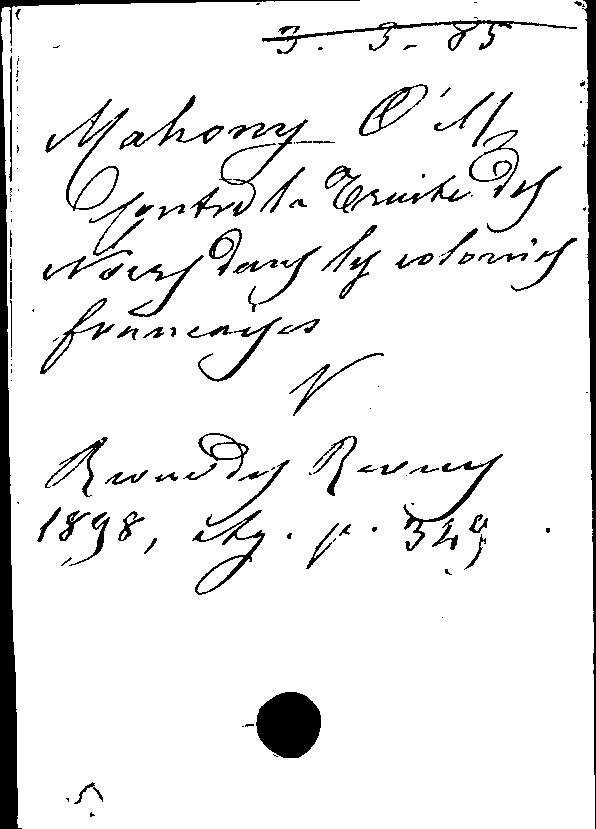 3. 3. 85
Mahony O'M
Contre la Traite des
Noirs dans les colonies
françaises
V
Revue des Revues
1898, p. 349.